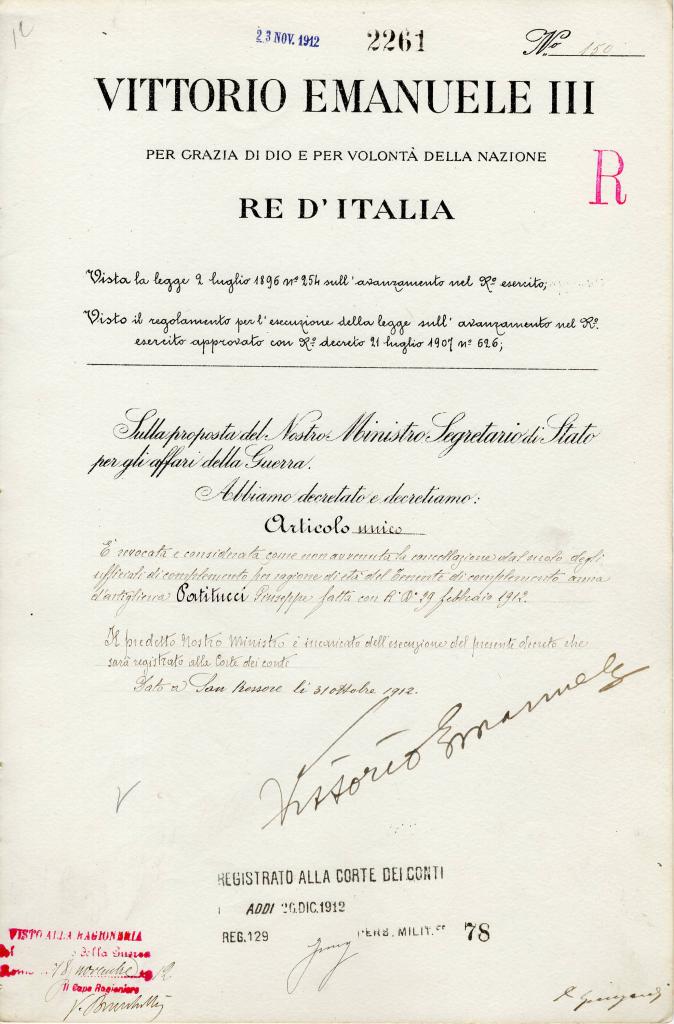 23 NOV. 1912 2261 No 150
VITTORIO EMANUELE III
PER GRAZIA DI DIO E PER VOLONTÀ DELLA NAZIONE
R
RE D'ITALIA
Vista la legge 2 luglio 1896 nº 254 sull'avanzamento nel Rº esercito;
Visto il regolamento per l'esecuzione della legge sull'avanzamento nel Rº
esercito approvato con Rº decreto 21 luglio 1907 nº 626;
Sulla proposta del Nostro Ministro Segretario di Stato
per gli affari della Guerra.
Abbiamo decretato e decretiamo:
Articolo unico
È revocata e considerata come non avvenuta la cancellazione dal ruolo degli
ufficiali di complemento per ragione di età del Tenente di complemento arma
d'artiglieria Patitucci Giuseppe fatta con R. Dº 29 febbraio 1912.
Il predetto Nostro Ministro è incaricato dell'esecuzione del presente decreto che
sarà registrato alla Corte dei conti
Dato a San Rossore li 31 ottobre 1912.
Vittorio Emanuele
REGISTRATO ALLA CORTE DEI CONTI
ADDI 26.DIC.1912
REG. 129 PERS. MILIT. 78
VISTO ALLA RAGIONERIA
della Guerra
Roma 18 novembre 1912
Il Capo Ragioniere